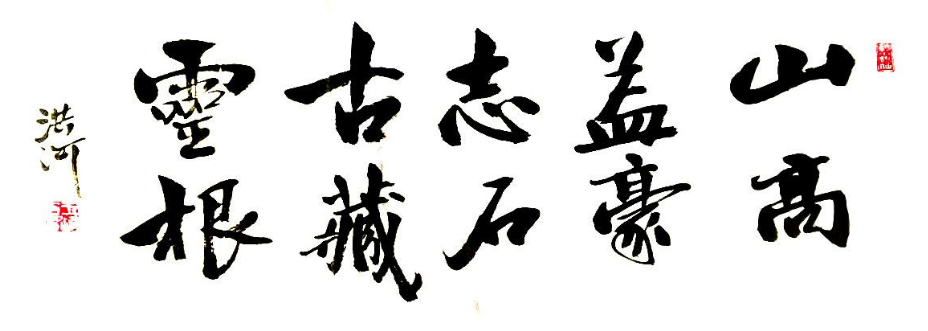 山高
益豪
志石
古藏
靈根
洪河